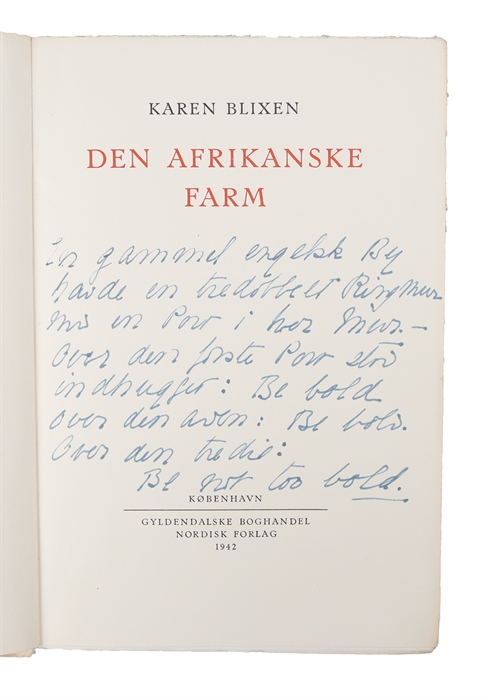 KAREN BLIXEN
DEN AFRIKANSKE
FARM
En gammel engelsk By
havde en tredobbelt Ringmur
med en Port i hver Mur. –
Over den første Port stod
indhugget: Be bold
Over den anden: Be bold.
Over den tredie:
Be not too bold.
KØBENHAVN
GYLDENDALSKE BOGHANDEL
NORDISK FORLAG
1942